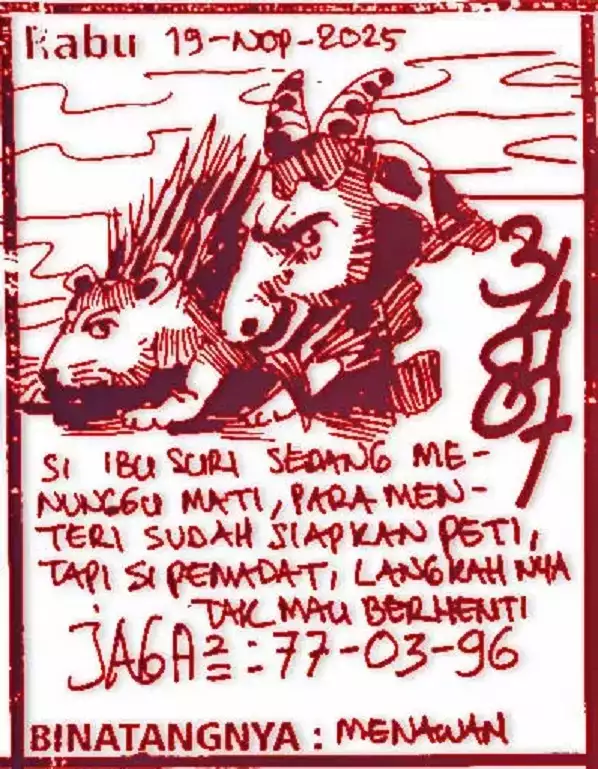 Rabu 19-NOP-2025
SI IBU SURI SEDANG ME-
NUNGGU MATI, PARA MEN-
TERI SUDAH SIAPKAN PETI,
TAPI SI PEMADAT, LANGKAHNYA
TAK MAU BERHENTI
JAGA²= : 77-03-96
BINATANGNYA : MENAWAN